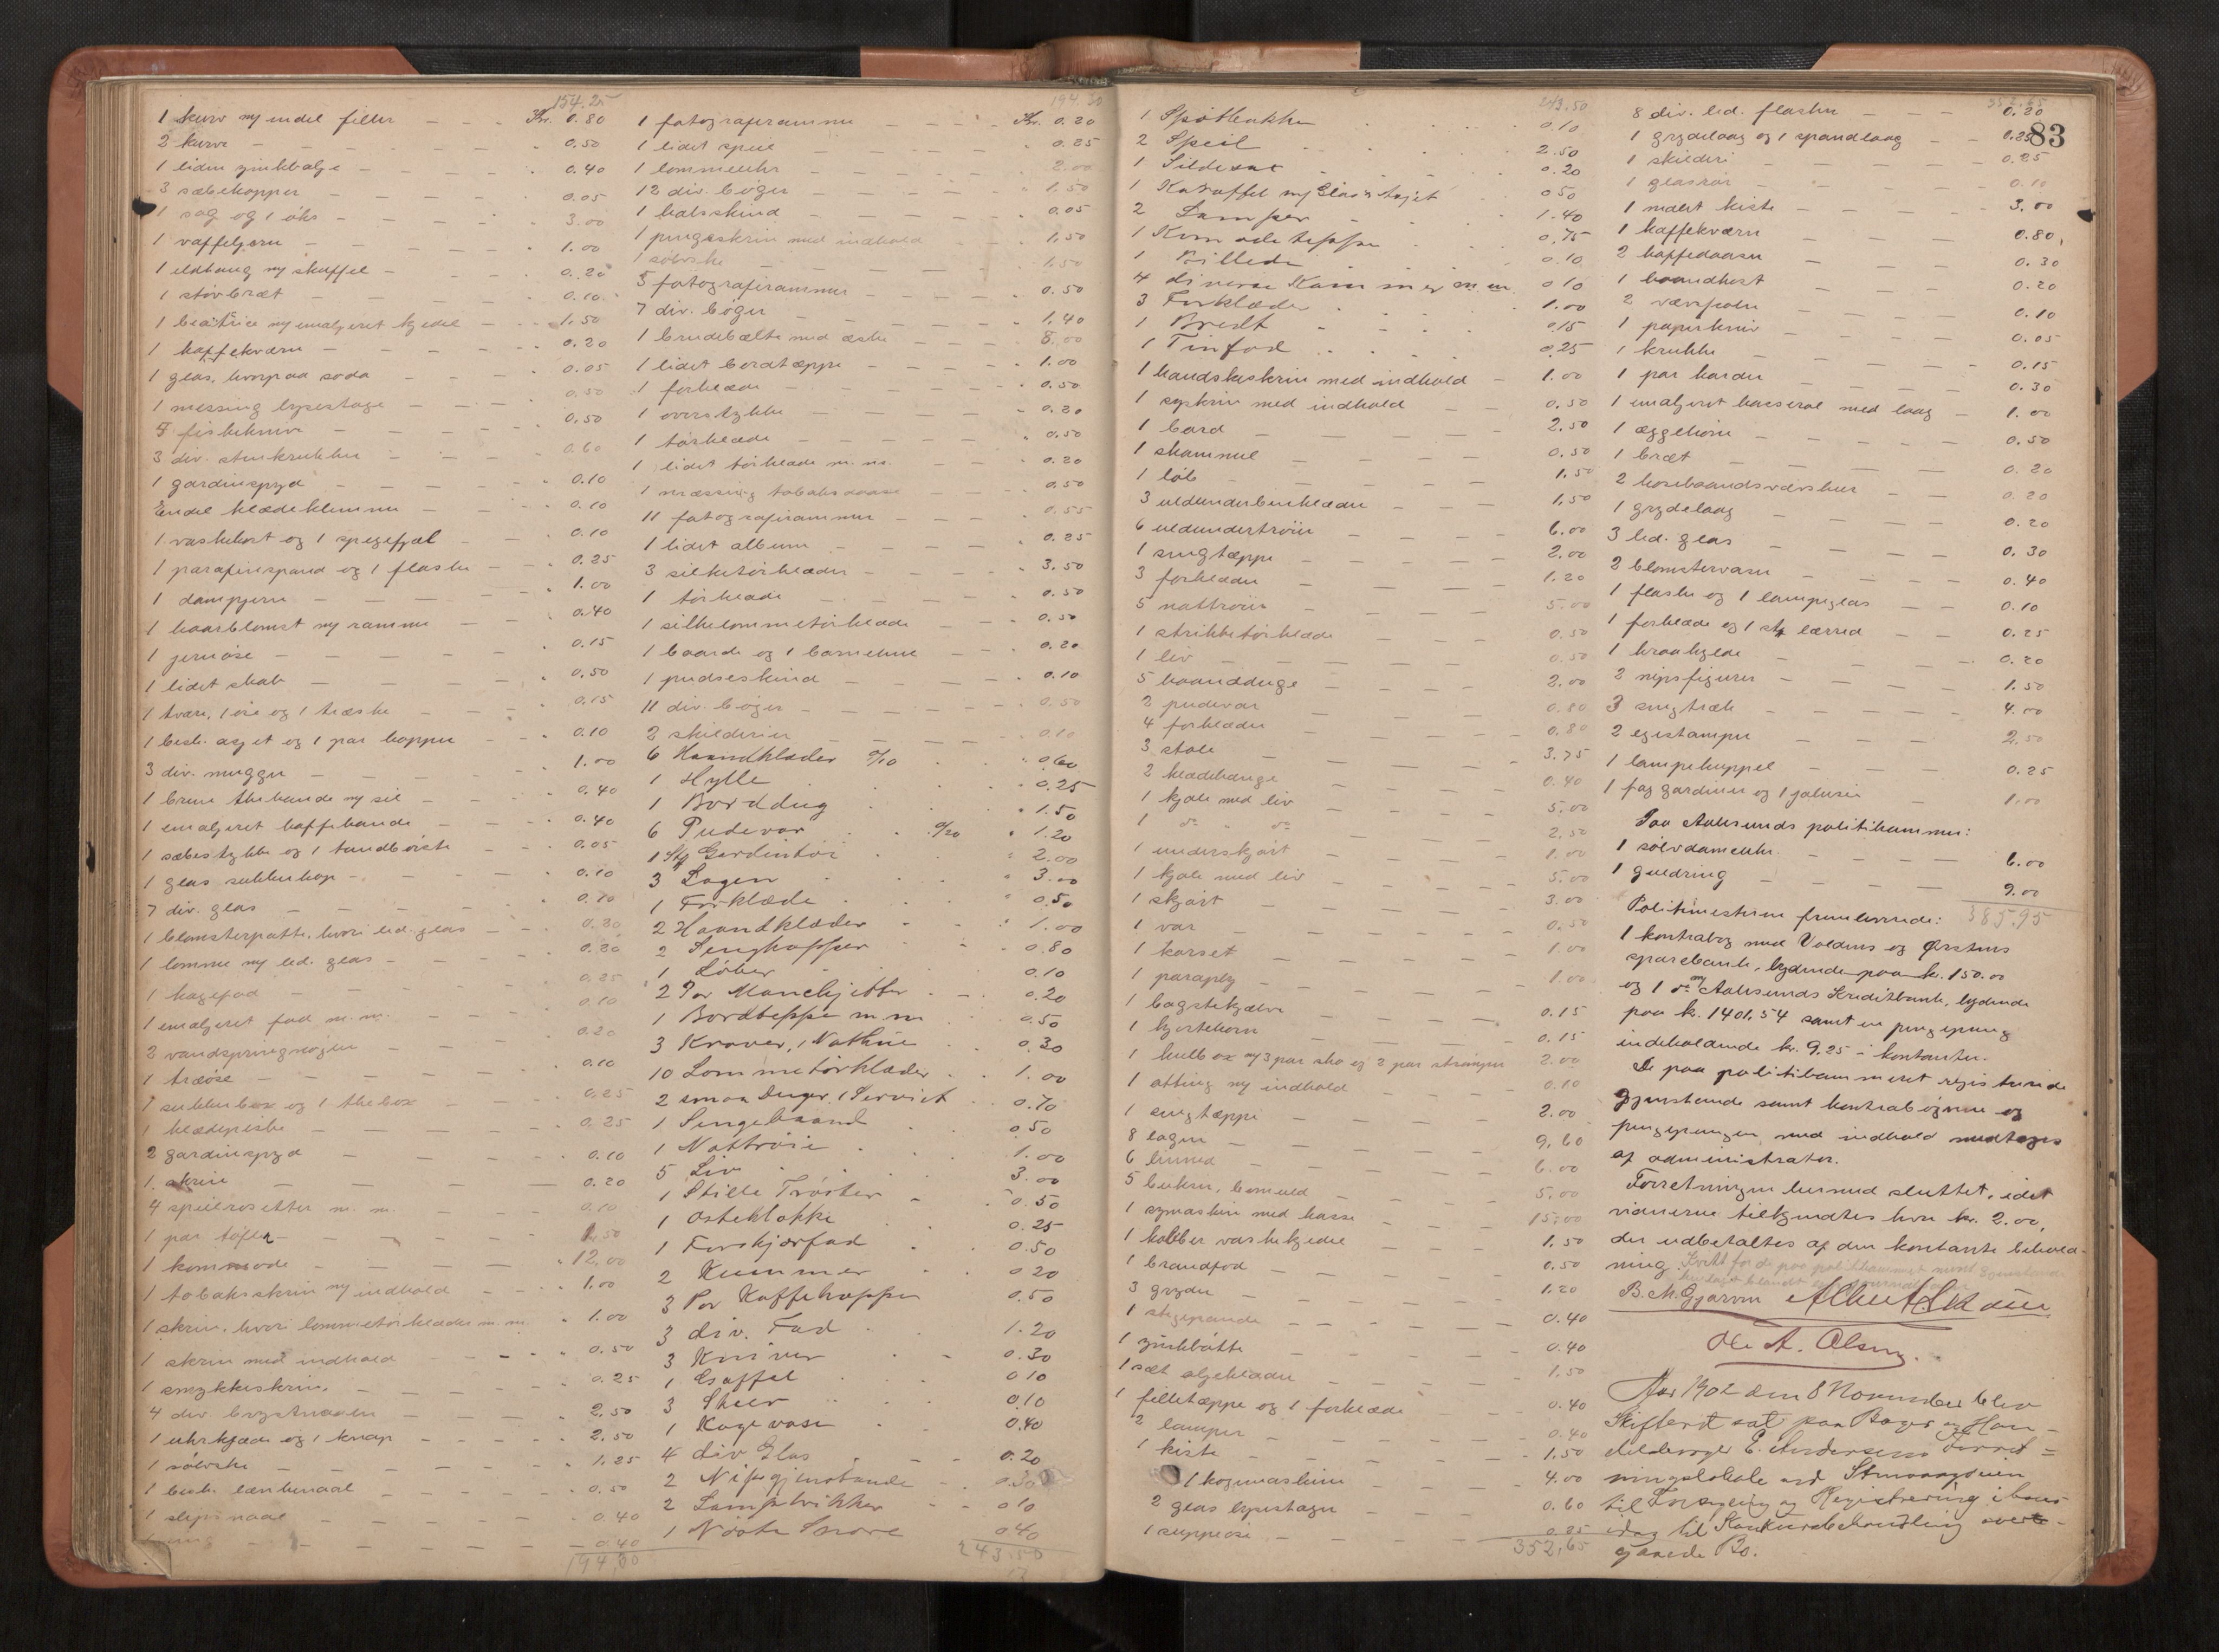 154.25
1 kurv m/ endel filler - - - Kr. 0.80
2 kurve - - - - " 0.50
1 liden zinkbalje - - - " 0.40
3 sæbekopper - - - - " 0.05
1 sag og 1 øks - - - - " 3.00
1 vaffeljern - - - - " 1.00
1 ildtang m/ skuffel - - - " 0.20
1 støvbræt - - - - " 0.10
1 beatrice m/ emaljeret kjedel - - " 1.50
1 kaffekværn - - - - " 0.20
1 glas, hvorpaa soda - - - " 0.05
1 messing lysestage - - - 0.50
4 fiskeknive - - - - " 0.50
3 div. stenkrukker - - - 0.60
1 gardinspyd - - - - " 0.10
Endel klædeklemmer - - - " 0.10
1 vaskekost og 1 spegefjæl - - " 0.10
1 parafinspand og 1 flaske - - " 0.25
1 dampjern - - - - " 1.00
1 haarblomst m/ ramme - - " 0.40
1 jernøse - - - - " 0.15
1 lidet skab - - - - " 0.50
1 tvare, 1 øse og 1 træske - - " 0.15
1 besk. asjet og 1 par kopper - - " 0.10
3 div. mugger - - - - " 1.00
1 brun thekande m/ sil - - " 0.40
1 emaljeret kaffekande - - " 0.40
1 sæbestykke og 1 tandbørste - - " 0.05
1 glas sukkerkop - - - " 0.10
7 div. glas - - - - " 0.70
1 blomsterpotte, hvori led. glas - - 0.20
1 lomme m/ led. glas - - - 0.20
1 kagefad - - - - 0.25
1 emaljeret fad m. m. - - - 0.10
2 vandspringsvøjer - - - 0.20
1 træøse - - - - 0.10
1 sukkerbox og 1 thebox - - - 0.25
1 klædepisker - - - - 0.25
2 gardinspyd - - - - " 0.10
1 skrin - - - - 0.20
4 speilrosetter m. m. - - - 0.10
1 par tøfler - - - - 1.50
1 kommode - - - - " 12.00
1 tobaksskrin m/ indhold - - " 1.00
1 skrin, hvori lommetørklæder m. m. - " 1.00
1 skrin med indhold - - " 0.50
1 smykkeskrin. - - - - " 0.25
4 div. brystnaaler - - - " 2.50
1 uhrkjæde og 1 knap - - - " 2.50
1 sølvske - - - - " 1.25
1 besk. lænkenaal - - - " 0.50
1 slipsnaal - - - - " 0.40
1 ring - - - - - 0.40
194.30
194.30
1 fotografiramme - - - Kr. 0.20
1 lidet speil - - - - " 0.25
1 lommeuhr - - - - 2.00
12 div. bøger - - - - " 1.50
1 halsskind - - - - " 0.05
1 pengeskrin med indhold - - " 1.50
1 sølvske - - - - " 1.50
5 fotografirammer - - - " 0.50
7 div. bøger - - - - " 1.40
1 brudebælte med æske - - " 8.00
1 lidet bordtæppe - - - " 1.00
1 forklæde - - - - " 0.50
1 overstykke - - - - " 0.20
1 tørklæde - - - - " 0.50
1 lidet tørklæde m. m. - - " 0.20
1 messing tobaksdaase - - " 0.50
11 fotografirammer - - - " 0.55
1 lidet album - - - - " 0.25
3 silketørklæder - - - " 3.50
1 tørklæde - - - - " 0.50
1 silkelommetørklæde - - " 0.50
1 baarde og 1 barnehue - - " 0.20
1 pudseskind - - - - " 0.10
11 div. bøger - - - - 0.50
2 skilderier - - - - 0.10
6 Haandklæder 0/10 . " 0.60
1 Hylle . . . " 0.25
1 Borddug . . . " 1.50
6 Pudevar . . 0/20 " 1.20
1 Stk Gardintøi . " 2.00
3 Lagen . . " 3.00
1 Forklæde . . " 0.50
2 Haandklæder . . " 1.00
2 Sengkapper . . " 0.80
1 Løber . . 0.10
2 Par Manchjetter . - 0.20
1 Bordteppe m m . 0.50
3 Kraver, 1 Nathue . 0.30
10 Lommetørklæder . . 1.00
2 smaa Duger, 1 Serviet . 0.70
1 Sengebaand . . 0.50
1 Nattrøie . . 1.00
5 Liv . . . 3.00
1 Stille Trøster . 0.50
1 Osteklokke . . 0.25
1 Forskjærfad . 0.50
2 Kummer . . 0 20
3 Par Kaffekopper . 0.50
3 div. Fad . . 1.20
3 Kniver . . 0.30
1 Gaffel . . 0 10
3 Skeer . . 0.10
1 Kagevase . . 0.40
4 div Glas . . 0.20
2 Nipsgjenstande - 0.30
2 Lampekikker - - 0 10
1 Nøste Snore 0 40
243.50
243.50
1 Spøtbakke . . . . 0.10
2 Speil . . . . 2.50
1 Sildesax . . . 0.20
1 Karaffel m/ Glas & Asjet . . 0 50
2 Lamper - . . . 1.40
1 Kommodeteppe . . 0.75
1 Billede . . . 0.10
4 diverse Kammer m. m. . 0 10
3 Forklæder . . . 1.00
1 Bredt . . . . 0.15
1 Tinfad . . . . 0.25
1 handskeskrin med indhold - 1.00
1 syskrin med indhold - - 0.50
1 bord - - - - - 2.50
1 skammel - - - - 0.50
1 løb - - - - 1.50
3 uldunderbenklæder - - - 1.50
6 uldundertrøier - - - - 6.00
1 sengtæppe - - - - 2.00
3 forklæder - - - - 1.20
5 nattrøier - - - - 5.00
1 strikketørklæde - - - 0.50
1 liv - - - - 0.50
5 haandduge - - - - 2.00
2 pudevar - - - - 0.80
4 forklæder - - - - 0.80
3 stole - - - - 3.75
2 klædehange - - - - 0.40
1 kjole med liv - - - 5.00
1 do " do - - - 2.50
1 underskjørt - - - - 1.00
1 kjole med liv - - - 5.00
1 skjørt - - - - 3.00
1 var - - - - 0.50
1 korset - - - - 1.00
1 paraply - - - - 1.00
1 bagstekjævle - - - - 0.15
1 hjortehorn - - - - 0.15
1 hulbox m/ 3 par sko og 2 par strømper 2.00
1 otting m/ indhold - - - 0.10
1 sengtæppe - - - - 2.00
8 lagen - - - - 9.60
6 linned - - - - 6.00
5 bukser, bomuld - - - 5.00
1 symaskin med kasse - - - 15.00
1 kobber vaskekjedel - - - 1.50
1 brandfod - - - - 0.50
3 gryder - - - - 1.20
1 stegepande - - - - 0.40
1 zinkbøtte - - - - 0.40
1 sæt oljeklæder - - - 1.50
1 filletæppe og 1 forklæde - - 0.40
2 lamper - - - - 0.40
1 kiste - - - - 1.50
1 kogemaskine - - - 4.00
2 glas lysestager - - - 0.60
1 suppeøse - - - - 0.25
352,65
83
352.65
8 div. led. flasker - - - 0.20
1 grydelaag og 1 spandlaag - - 0.25
1 skilderi - - - - 0.25
1 glasrør - - - - 0.10
1 malet kiste - - - - 3.00
1 kaffekværn - - - - 0.80
2 kaffedaaser - - - - 0.30
1 haandkost - - - - 0.20
2 vævspoler - - - - 0.10
1 papirkniv - - - - 0.05
1 krukke - - - - 0.15
1 par karder - - - - 0.30
1 emaljeret kasserol med laag - 1.00
1 æggehorn - - - - 0.50
1 bræt - - - - 0.20
2 hosebaandsvævskeer - - - 0.20
1 grydelaag - - - - 0.20
3 led. glas - - - - 0.30
2 blomstervaser - - - - 0.40
1 flaske og 1 lampeglas - - 0.10
1 forklæde og 1 stk lærred - - 0.25
1 kraakjede - - - - 0.20
2 nipsfigurer - - - - 1.50
3 sengtræk - - - - 4.00
2 egestamper - - - - 2.50
1 lampekuppel - - - - 0.25
1 fag gardiner og 1 jalusie - - 1.00
Paa Aalesunds politikammer:
1 sølvdameuhr. - - - - 6.00
1 guldring - - - - 9.00
385.95
Politimesteren fremleverede:
1 kontrabog med Voldens og Ørstens
sparebank, lydende paa kr. 150.00
og 1 do m/ Aalesunds Kreditbank, lydende
paa kr. 1401,54 samt en pengepung
indeholdende kr. 9.25 i kontanter.
De paa politikammeret registrerede
gjenstande samt kontrabøgerne og
pengepungen med indhold medtoges
af administrator.
Forretningen hermed sluttet, idet
vidnerne tilkjendtes hver kr. 2.00,
der udbetaltes af den kontante behold-
ning.
B. M. Gjærum
Ole A. Olsen.
Aar 1902 den 8 November blev
Skifteret sat paa Bager og Han-
delsborger E. Andersens Forret-
ningslokale ved Storvaagveien
til Forsegling og Registrering i hans
idag til Konkursbehandling over-
givende Bo.